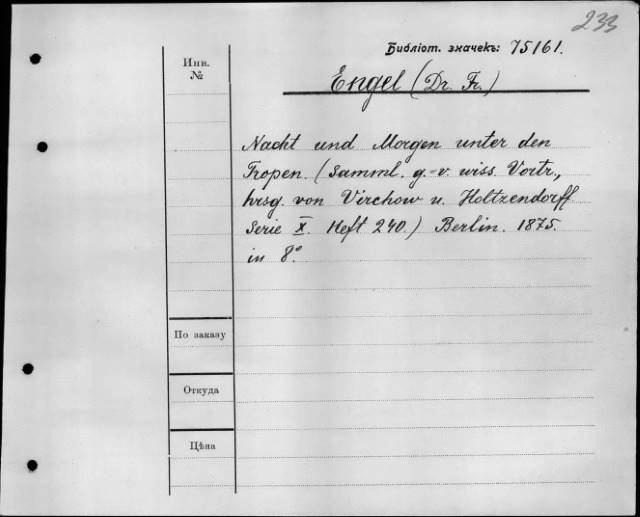 233
Библіот. значекъ: 75161.
Инв.
№
Engel (Dr. Fr.)
Nacht und Morgen unter den
Tropen. (Samml. g.-v. wiss. Vortr.,
hrsg. von Virchow u. Holtzendorff
Serie X. Heft 240.) Berlin. 1875.
in 8°.
По заказу
Откуда
Цѣна